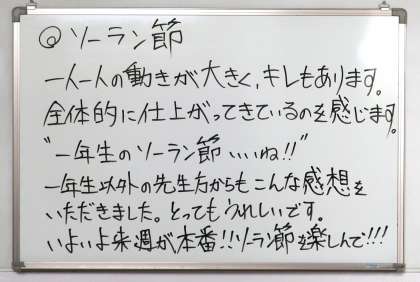 ◎ソーラン節
一人一人の動きが大きく、キレもあります。
全体的に仕上がってきているのを感じます。
"一年生のソーラン節いいね!!"
一年生以外の先生方からもこんな感想を
いただきました。とってもうれしいです。
いよいよ来週が本番!!ソーラン節を楽しんで!!!